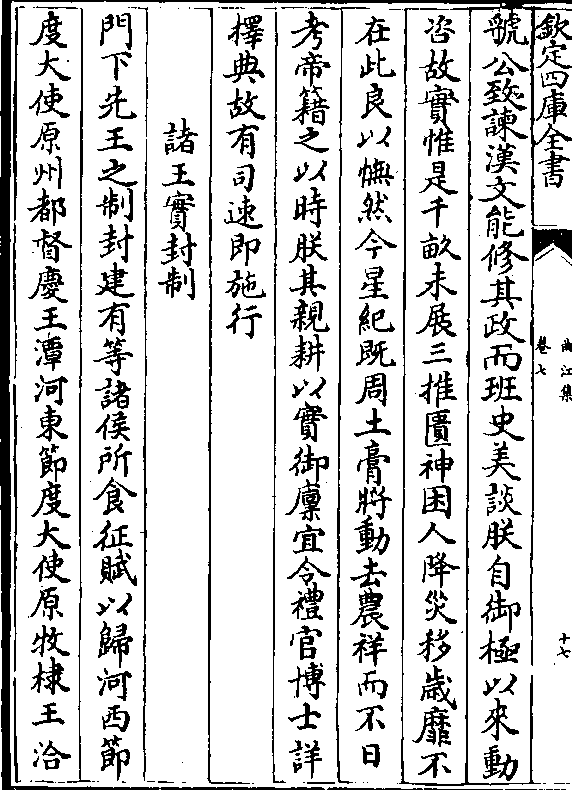 欽定四庫全書
曲江集
卷七
十七
虢公致諫漢文能修其政而班史美談朕自御極以來動
咨故實惟是千畝未展三推匱神困人降災移歲靡不
在此良以憮然今星紀既周土膏將動去農祥而不日
考帝籍之以時朕其親耕以實御廪宜令禮官博士詳
擇典故有司速即施行
諸王實封制
門下先王之制封建有等諸侯所食征賦以歸河西節
度大使原州都督慶王潭河東節度大使原牧棣王洽